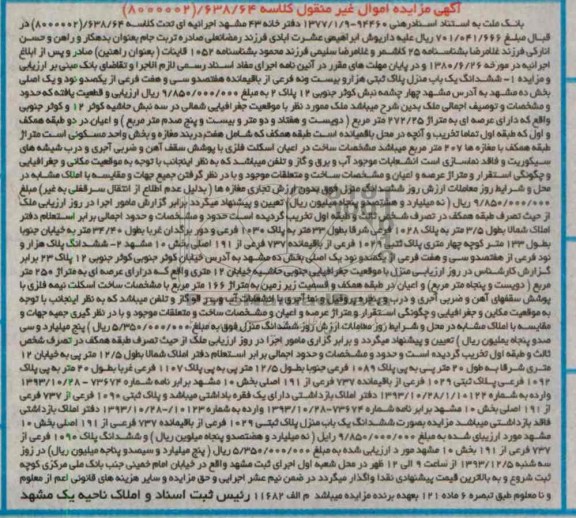 آگهی مزایده اموال غیر منقول کلاسه ۶۳۸/۶۴/(۸۰۰۰۰۰۲)
بانک ملت به استناد اسنادرهنی ۹۴۴۶۰-۱۳۷۷/۱۱/۹ دفترخانه ۴۳ مشهد اجرائیه ای تحت کلاسه ۶۳۸/۶۴/(۸۰۰۰۰۰۲) در
قبال مبلغ ۷۰۱/۰۴۱/۶۶۶ ریال علیه داریوش ابراهیمی عشرت ابادی فرزند رمضانعلی صادره تربت جام بعنوان بدهکار و راهن و حسن
انارکی فرزند غلامرضا بشناسنامه ۲۵ کاشمر و غلامرضا سلیمی فرزند محمود بشناسنامه ۱۰۵۲ قاینات (بعنوان راهنین) صادر و پس از ابلاغ
اجرائیه در مورخه ۱۳۸۰/۶/۲۶ و در پایان مهلت های مقرر در آئین نامه اجرای مفاد اسناد رسمی لازم الاجرا و تقاضای بانک مبنی بر ارزیابی
و مزایده ۱- ششدانگ یک باب منزل پلاک ثبتی هزارو بیست ونه فرعی از باقیمانده هفتصدو سی و هفت فرعی از یکصدو نود و یک اصلی
بخش ده مشهد به آدرس مشهد چهار چشمه نبش کوثر جنوبی ۱۲ پلاک ۲ به مبلغ ۹/۸۵۰/۰۰۰/۰۰۰ ریال ارزیابی و قطعیت یافته که حدود
و مشخصات و توصیف اجمالی ملک بدین شرح میباشد ملک مورد نظر با موقعیت جغرافیایی شمالی در سه نبش حاشیه کوثر ۱۲ و کوثر جنوبی
واقع که دارای عرصه ای به متراژ ۲۷۲/۲۵ متر مربع (دویست و هفتاد و دو متر و بیست و پنج صدم متر مربع) و اعیان در دو طبقه همکف
و اول که طبقه اول تماما تخریب و آنچه در محل باقیمانده است طبقه همکف که شامل هفت دربند مغازه و بخش واحد مسکونی است متراژ
طبقه همکف با مغازه ها ۲۰۷ متر مربع میباشد مشخصات ساخت در اعیان اسکلت فلزی با پوشش سقف آهن و ضربی آجری و درب شیشه های
سیکوریت و فاقد نماسازی است انشعابات موجود آب و برق و گاز و تلفن میباشد که به نظر اینجانب با توجه به موقعیت مکانی و جغرافیایی
و چگونگی استقرار و متراژ عرصه و اعیان و مشخصات ساخت و متعلقات موجود و با در نظر گرفتن جمیع جهات و مقایسه با املاک مشابه در
محل و شرایط روز معاملات ارزش روز ششدانگ منزل فوق بدون ارزش تجاری مغازه ها (بدلیل عدم اطلاع از انتقال سرقفلی به غیر) مبلغ
۹/۸۵۰/۰۰۰/۰۰۰ ریال (نه میلیارد و هشتصدو پنجاه میلیون ریال) تعیین و پیشنهاد میگردد برابر گزارش مامور اجرا در روز ارزیابی ملک
از حیث تصرف طبقه همکف در تصرف شخص ثالث و طبقه اول تخریب گردیده است حدود و مشخصات و حدود اجمالی برابر استعلام دفتر
املاک شمالا بطول ۳/۵ متر به پلاک ۱۰۲۸ فرعی شرقا بطول ۳۳ متر به پلاک ۱۰۳۰ فرعی و دور برگردان غربا بطول ۳۴/۴۰ متر به خیابان جنوبا
بطول ۱۳۳ متر کوچه چهار متری پلاک ثبتی ۱۰۲۹ فرعی از باقیمانده ۷۳۷ فرعی از ۱۹۱ اصلی بخش ۱۰ مشهد ۲- ششدانگ پلاک هزار و
نود فرعی از هفتصدو سی و هفت فرعی از یکصدو نود یک اصلی بخش ده مشهد به آدرس خیابان کوثر جنوبی کوثر جنوبی ۱۲ پلاک ۲۳ برابر
گزارش کارشناس در روز ارزیابی منزل با موقعیت جغرافیایی جنوبی حاشیه خیابان ۱۲ متری واقع که دارای عرصه ای به متراژ ۲۵۰ متر
مربع (دویست و پنجاه متر مربع) و اعیان در طبقه همکف و قسمت زیر زمین به متراژ ۱۶۶ متر مربع با مشخصات ساخت اسکلت نیمه فلزی با
پوشش سقفهای آهن و ضربی آجری و درب و پنجره پروفیل و نما آجری با انشعابات آب و برق و گاز و تلفن میباشد که به نظر اینجانب با توجه
به موقعیت مکانی و جغرافیایی و چگونگی استقرار و متراژ عرصه و اعیان و مشخصات ساخت و متعلقات موجود و با در نظر گیری جمیع جهات و
مقایسه با املاک مشابه در محل و شرایط روز معاملات ارزش روز ششدانگ منزل فوق به مبلغ ۵/۳۵۰/۰۰۰/۰۰۰ ریال) پنج میلیارد و سی
صدو پنجاه میلیون ریال) تعیین و پیشنهاد میگردد و برابر گزاری مامور اجرا در روز ارزیابی ملک از حیث تصرف طبقه همکف در تصرف شخص
ثالث و طبقه اول تخریب گردیده است و حدود و مشخصات و حدود اجمالی برابر استعلام دفتر املاک شمالا بطول ۱۲/۵ متر پی به خیابان ۱۲
متری شرقا به طول ۲۰ متر پی به پی پلاک ۱۰۸۹ فرعی جنوبا بطول ۱۲/۵ متر پی به پی پلاک ۱۱۰۷ فرعی غربا بطول ۲۰ متر به پی پلاک
۱۰۹۲ فرعی پلاک ثبتی ۱۰۲۹ فرعی از باقیمانده ۷۳۷ فرعی از ۱۹۱ اصلی بخش ۱۰ مشهد برابر نامه شماره ۷۳۶۷۴-۱۳۹۳/۱۰/۲۸
وارده به شماره ۱۰۱۲۲-۱۳۹۳/۱۰/۲۸ دفتر املاک بازداشتی دارای یک فقره باداشتی میباشد و پلاک ثبتی ۱۰۹۰ فرعی از ۷۳۷ فرعی
از ۱۹۱ اصلی بخش ۱۰ مشهد برابر نامه شماره ۷۳۶۷۴-۱۳۹۳/۱۰/۲۸ وارده به شماره ۱۰۱۲۲-۱۳۹۳/۱۰/۲۸ دفتر املاک بازداشتی
فاقد بازداشتی میباشد مزایده بصورت ششدانگ یک باب منزل پلاک ثبتی ۱۰۲۹ فرعی از باقیمانده ۷۳۷ فرعی از ۱۹۱ اصلی بخش ۱۰
مشهد مورد ارزیبای شده به مبلغ ۹/۸۵۰/۰۰۰/۰۰۰ رایل (نه میلیارد و هضتصدو پنجاه میلوین ریال) و ششدانگ پلاک ۱۰۹۰ فرعی از
۷۳۷ فرعی از ۱۹۱ بخش ۱۰ مشهد مور د ارزیابی شده به مبلغ ۵/۳۵۰/۰۰۰/۰۰۰ ریال (پنج میلیارد و سیصدو پنجاه میلیون ریال) در زوز
سه شنبه ۱۳۹۳/۱۲/۵ از ساعت ۹ الی ۱۲ ظهر در محل شعبه اول اجرای ثبت مشهد واقع در خیابان امام خمینی جنب بانک ملی مرکزی کوچه
ثبت شروع و به بالاترین قیمت پیشنهادی نقدا واگذار میگردد در ضمن نیم عشر اجرایی و حق مزایده و سایر هزینه های قانونی اعم از معلوم
و نا معلوم طبق تبصره ۶ ماده ۱۲۱ بعهده برنده مزایده میباشد م الف ۱۱۶۸۲ رئیس ثبت اسناد و املاک ناحیه یک مشهد